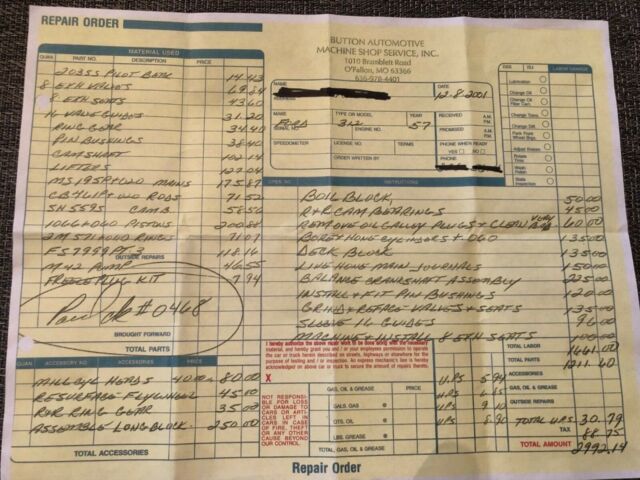 REPAIR ORDER
BUTTON AUTOMOTIVE
MACHINE SHOP SERVICE, INC.
1010 Bramblett Road
O'Fallon, MO 63366
636-978-4401
MATERIAL USED
QUAN. PART NO. DESCRIPTION PRICE
203SS PILOT BEAR 14.43
8 EXH VALVES 69.84
8 EXH SEATS 43.60
16 VALVE GUIDES 31.20
RING GEAR 34.40
PIN BUSHINGS 38.40
CAMSHAFT 102.14
LIFTERS 127.04
MS195P+020 MAINS 175.87
CB411P+020 RODS 71.52
SH 559S CAMB 58.56
1066+060 PISTONS 200.88
2M571+060 RINGS 71.07
FS7999PT-3 118.16
OUTSIDE REPAIRS
M42 PUMP 46.55
FREEZE PLUG KIT 7.94
Paid Ck #0468
BROUGHT FORWARD
TOTAL PARTS
QUAN. ACCESSORIES PRICE
MILL CYL HEADS 40.00 80.00
RESURFACE FLYWHEEL 45.00
R&R RING GEAR 35.00
ASSEMBLE LONG BLOCK 250.00
TOTAL ACCESSORIES
NAME
ADDRESS
DATE 12-8-2001
MAKE FORD
TYPE OR MODEL 312
YEAR 57
RECEIVED A.M. P.M.
SERIAL NO.
ENGINE NO.
PROMISED A.M. P.M.
SPEEDOMETER
LICENSE NO.
TERMS
PHONE WHEN READY
YES NO
ORDER WRITTEN BY
PHONE
OPER. NO. INSTRUCTIONS
LABOR CHARGE
Lubrication
Change Oil
Change Oil Filter Cart.
Change Trans.
Change Diff.
Pack Front Wheel Brgs.
Adjust Brakes
Rotate Tires
Wash Polish
State Inspection
BOIL BLOCK, 50.00
R+R CAM BEARINGS 45.00
REMOVE OIL GALLEY PLUGS + CLEAN VERY BAD 60.00
BORE + HONE CYLINDERS + .060 135.00
DECK BLOCK 135.00
LINE HONE MAIN JOURNALS 150.00
BALANCE CRANKSHAFT ASSEMBLY 225.00
INSTALL + FIT PIN BUSHINGS 120.00
GRIND + REFACE VALVES + SEATS 135.00
SLEEVE 16 GUIDES 96.00
MACHINE + INSTALL 8 EXH SEATS 100.00
I hereby authorize the above repair work to be done along with the necessary material, and hereby grant you and / or your employees permission to operate the car or truck herein described on streets, highways or elsewhere for the purpose of testing and / or inspection. An express mechanic's lien is hereby acknowledged on above car or truck to secure the amount of repairs thereto.
X
NOT RESPONSIBLE FOR LOSS OR DAMAGE TO CARS OR ARTICLES LEFT IN CARS IN CASE OF FIRE, THEFT OR ANY OTHER CAUSE BEYOND OUR CONTROL.
GAS, OIL & GREASE
GALS. GAS @
QTS. OIL @
LBS. GREASE @
TOTAL, GAS, OIL & GREASE
UPS 5.94
UPS
UPS 9.10
UPS 8.90
TOTAL LABOR 1661.00
TOTAL PARTS 1211.60
ACCESSORIES
GAS, OIL & GREASE
OUTSIDE REPAIRS
TOTAL UPS 30.79
TAX 88.75
TOTAL AMOUNT 2992.14
Repair Order